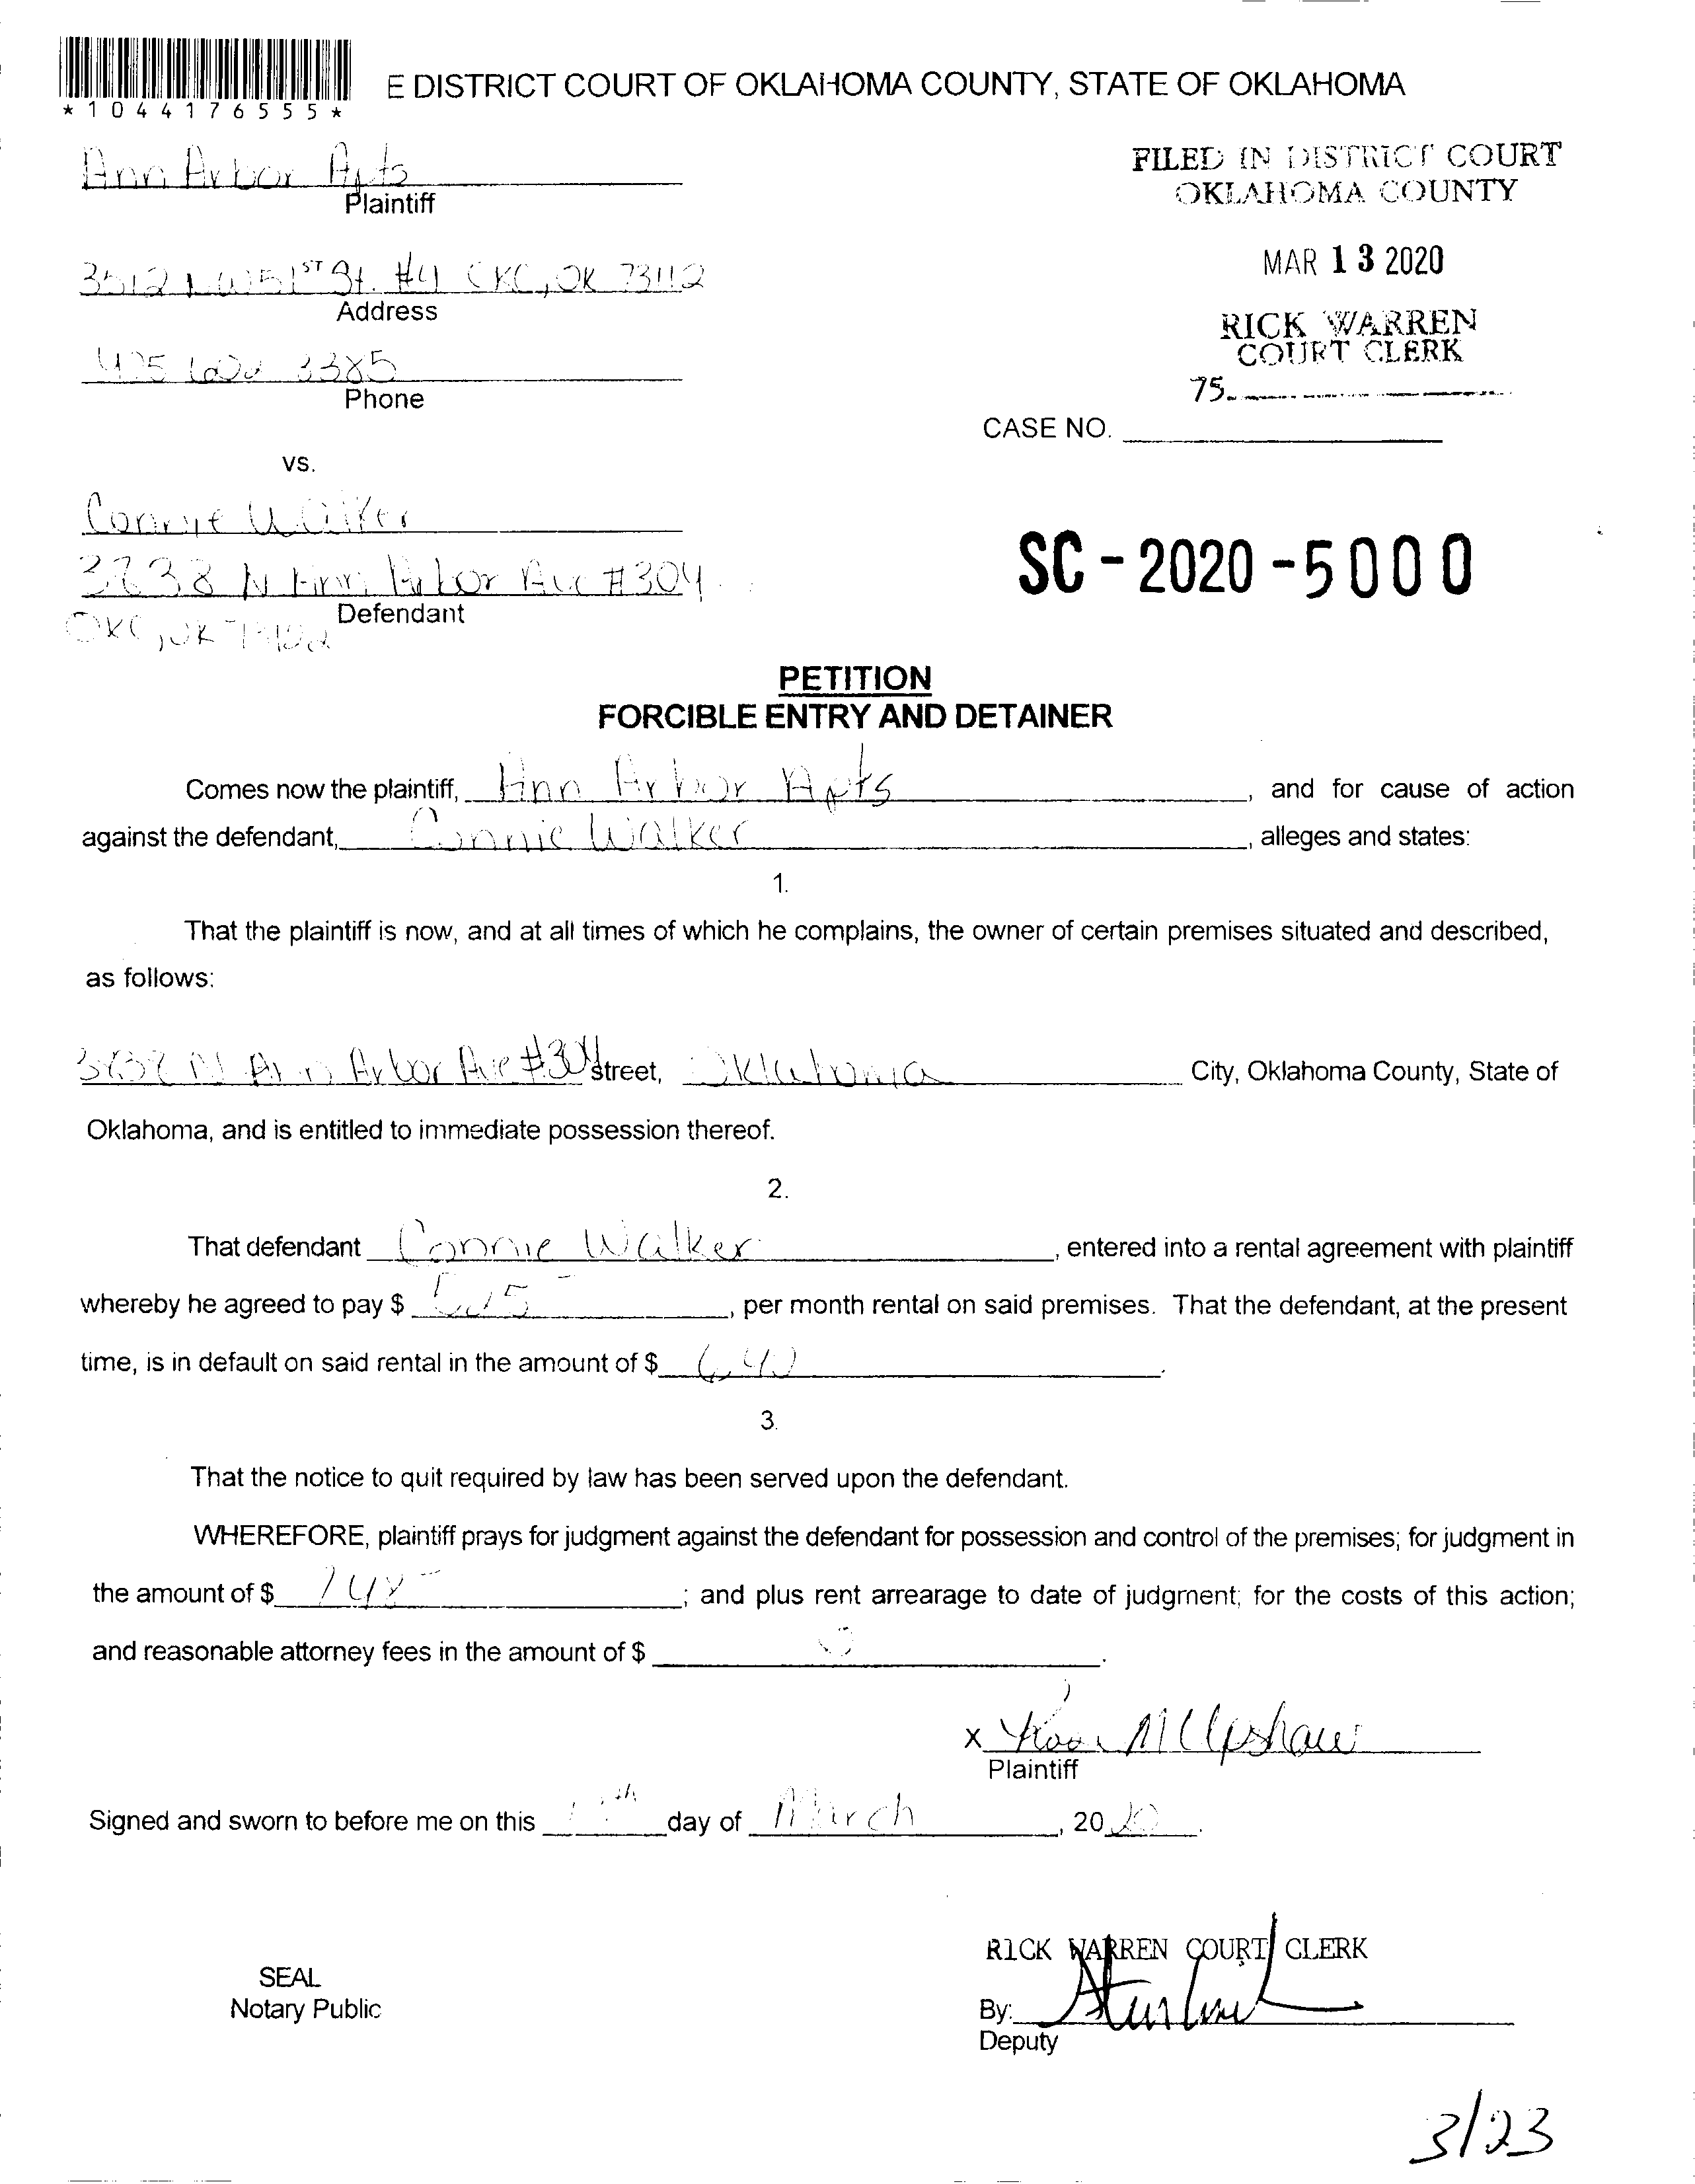 *1044176555*
E DISTRICT COURT OF OKLAHOMA COUNTY, STATE OF OKLAHOMA
Ann Arbor Apts
Plaintiff
FILED IN DISTRICT COURT
OKLAHOMA COUNTY
MAR 13 2020
RICK WARREN
COURT CLERK
75
3512 NW 51ST St. #4 OKC, OK 73112
Address
3385
Phone
CASE NO.
vs.
Connie Walker
N Ann Arbor Ave #304
OKC, OK
Defendant
SC-2020-5000
PETITION
FORCIBLE ENTRY AND DETAINER
Comes now the plaintiff, Ann Arbor Apts, and for cause of action
against the defendant, Connie Walker, alleges and states:
1.
That the plaintiff is now, and at all times of which he complains, the owner of certain premises situated and described,
as follows:
N Ann Arbor Ave #304 Street, Oklahoma City, Oklahoma County, State of
Oklahoma, and is entitled to immediate possession thereof.
2.
That defendant Connie Walker, entered into a rental agreement with plaintiff
whereby he agreed to pay $, per month rental on said premises. That the defendant, at the present
time, is in default on said rental in the amount of $.
3.
That the notice to quit required by law has been served upon the defendant.
WHEREFORE, plaintiff prays for judgment against the defendant for possession and control of the premises; for judgment in
the amount of $; and plus rent arrearage to date of judgment; for the costs of this action;
and reasonable attorney fees in the amount of $.
x Upshaw
Plaintiff
Signed and sworn to before me on this day of March, 2020.
RICK WARREN COURT CLERK
SEAL
Notary Public
By:
Deputy
3/23